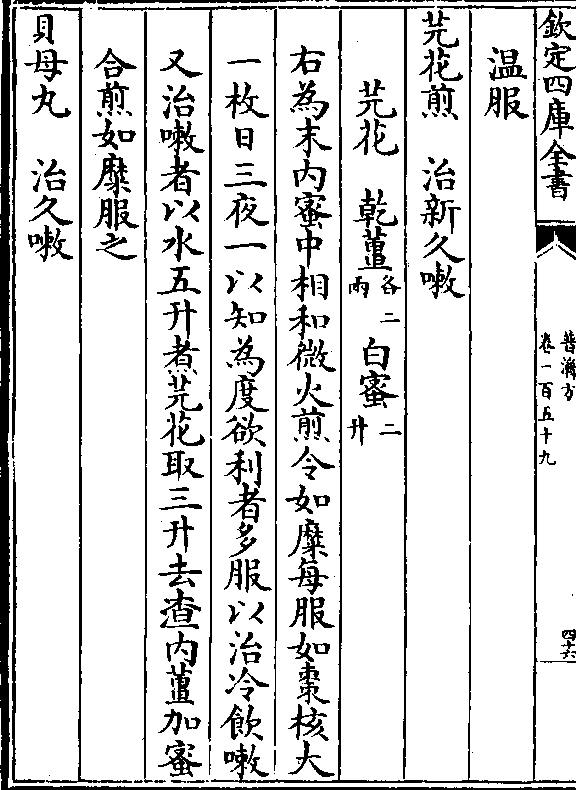 欽定四庫全書
普濟方
卷一百五十九
四十六
温服
芫花煎　治新久嗽
芫花　乾薑各二兩　白蜜二升
右為末内蜜中相和微火煎令如糜每服如棗核大
一枚日三夜一以知為度欲利者多服以治冷飲嗽
又治嗽者以水五升煮芫花取三升去渣内薑加蜜
合煎如糜服之
貝母丸　治久嗽